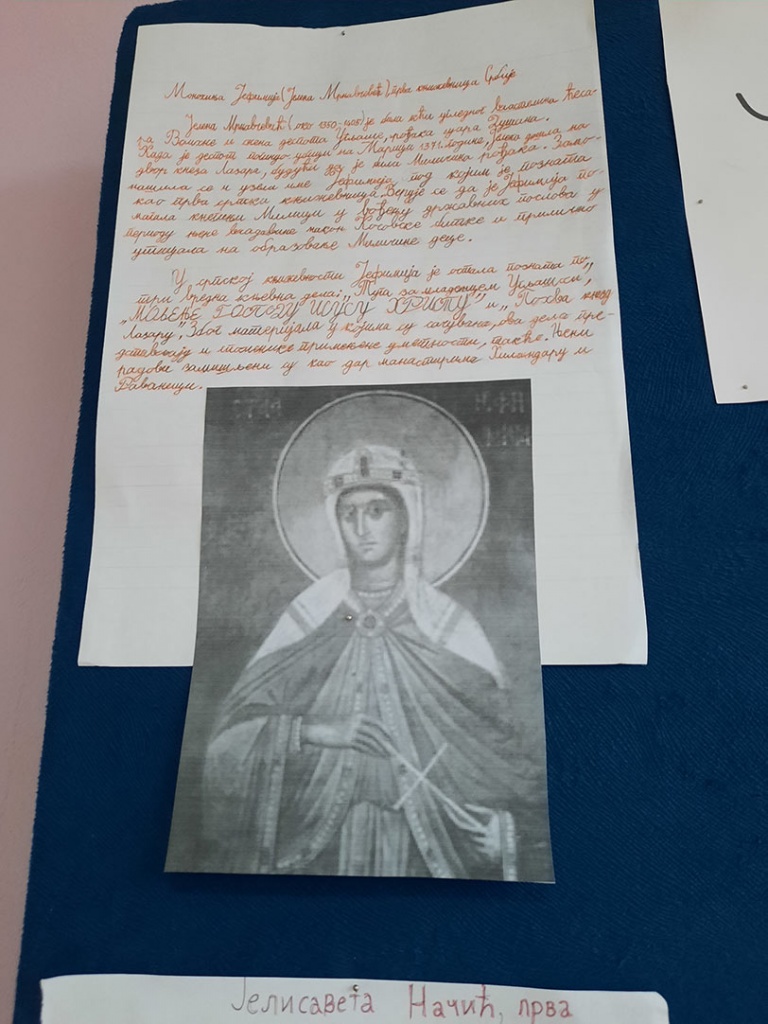 Монахиња Јефимија (Јелена Мрњавчевић) прва књижевница Србије
Јелена Мрњавчевић (око 1350-1405) је била кћи угледног властелина ћеса-
ра Војихне и жена деспота Угљеше, рођака цара Душана.
Када је деспот погинуо на Марици 1371. године, Јелена дошла на
двор кнеза Лазара, будући да је била Миличина рођака. Замо-
нашила се и узела име Јефимија, под којим је позната
као прва српска књижевница. Верује се да је Јефимија по-
магала кнегињи Милици у вођењу државних послова у
периоду њене владавине након Косовске битке и прилично
утицала на образовање Миличине деце.
У српској књижевности Јефимија је остала позната по
три вредна дела: „Туга за младенцем Угљешом",
„МОЉЕЊЕ ГОСПОДУ ИСУСУ ХРИСТУ" и „Похвала кнезу
Лазару". Због материјала у којима су сачувана, ова дела пре-
дстављају и споменике примењене уметности, такође. Њени
радови замишљени су као дар манастирима Хиландару и
Јелисавета Начић, прва